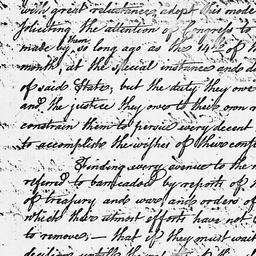 with great reluctance adopt this mode
soliciting the attention of Congress to
made by them, so long ago as the 14th of th
month, at the special instance and d
of said State, but the duty they owe
and the justice they owe to their own
constrain them to persue every decent
to accomplish the wishes of their cons
Finding every avenue to the
referred to barricaded by reports of
of treasury and war and orders of
which their utmost efforts have not
to remove; — that if they must wait
decisions until the